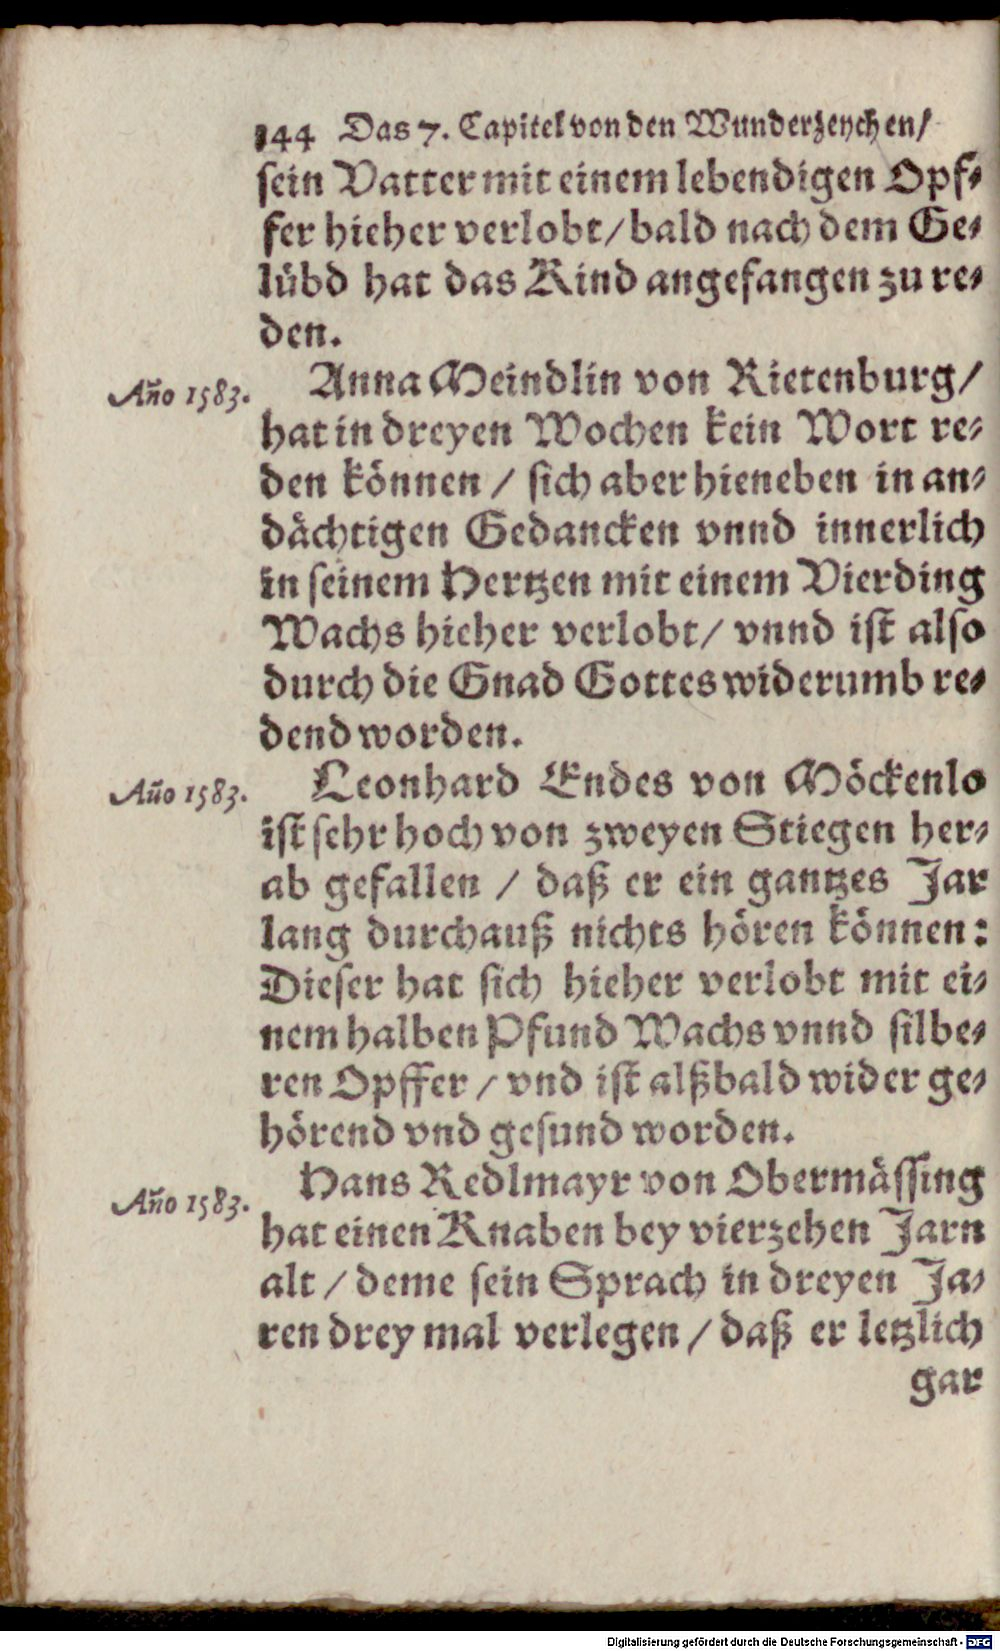 144 Das 7. Capitel von den Wunderzeychen/
sein Vatter mit einem lebendigen Opf-
fer hieher verlobt/ bald nach dem Ge-
lübd hat das Kind angefangen zu re-
den.
Año 1583. Anna Meindlin von Rietenburg/
hat in dreyen Wochen kein Wort re-
den können / sich aber hieneben in an-
dächtigen Gedancken vnnd innerlich
in seinem Hertzen mit einem Vierding
Wachs hieher verlobt/ vnnd ist also
durch die Gnad Gottes widerumb re-
dend worden.
Año 1583. Leonhard Endes von Möckenlo
ist sehr hoch von zweyen Stiegen her-
ab gefallen / daß er ein gantzes Jar
lang durchauß nichts hören können:
Dieser hat sich hieher verlobt mit ei-
nem halben Pfund Wachs vnnd silbe-
ren Opffer / vnd ist alßbald wider ge-
hörend vnd gesund worden.
Año 1583. Hans Redlmayr von Obermässing
hat einen Knaben bey vierzehen Jarn
alt / deme sein Sprach in dreyen Ja-
ren drey mal verlegen / daß er letzlich
gar
Digitalisierung gefördert durch die Deutsche Forschungsgemeinschaft - DFG